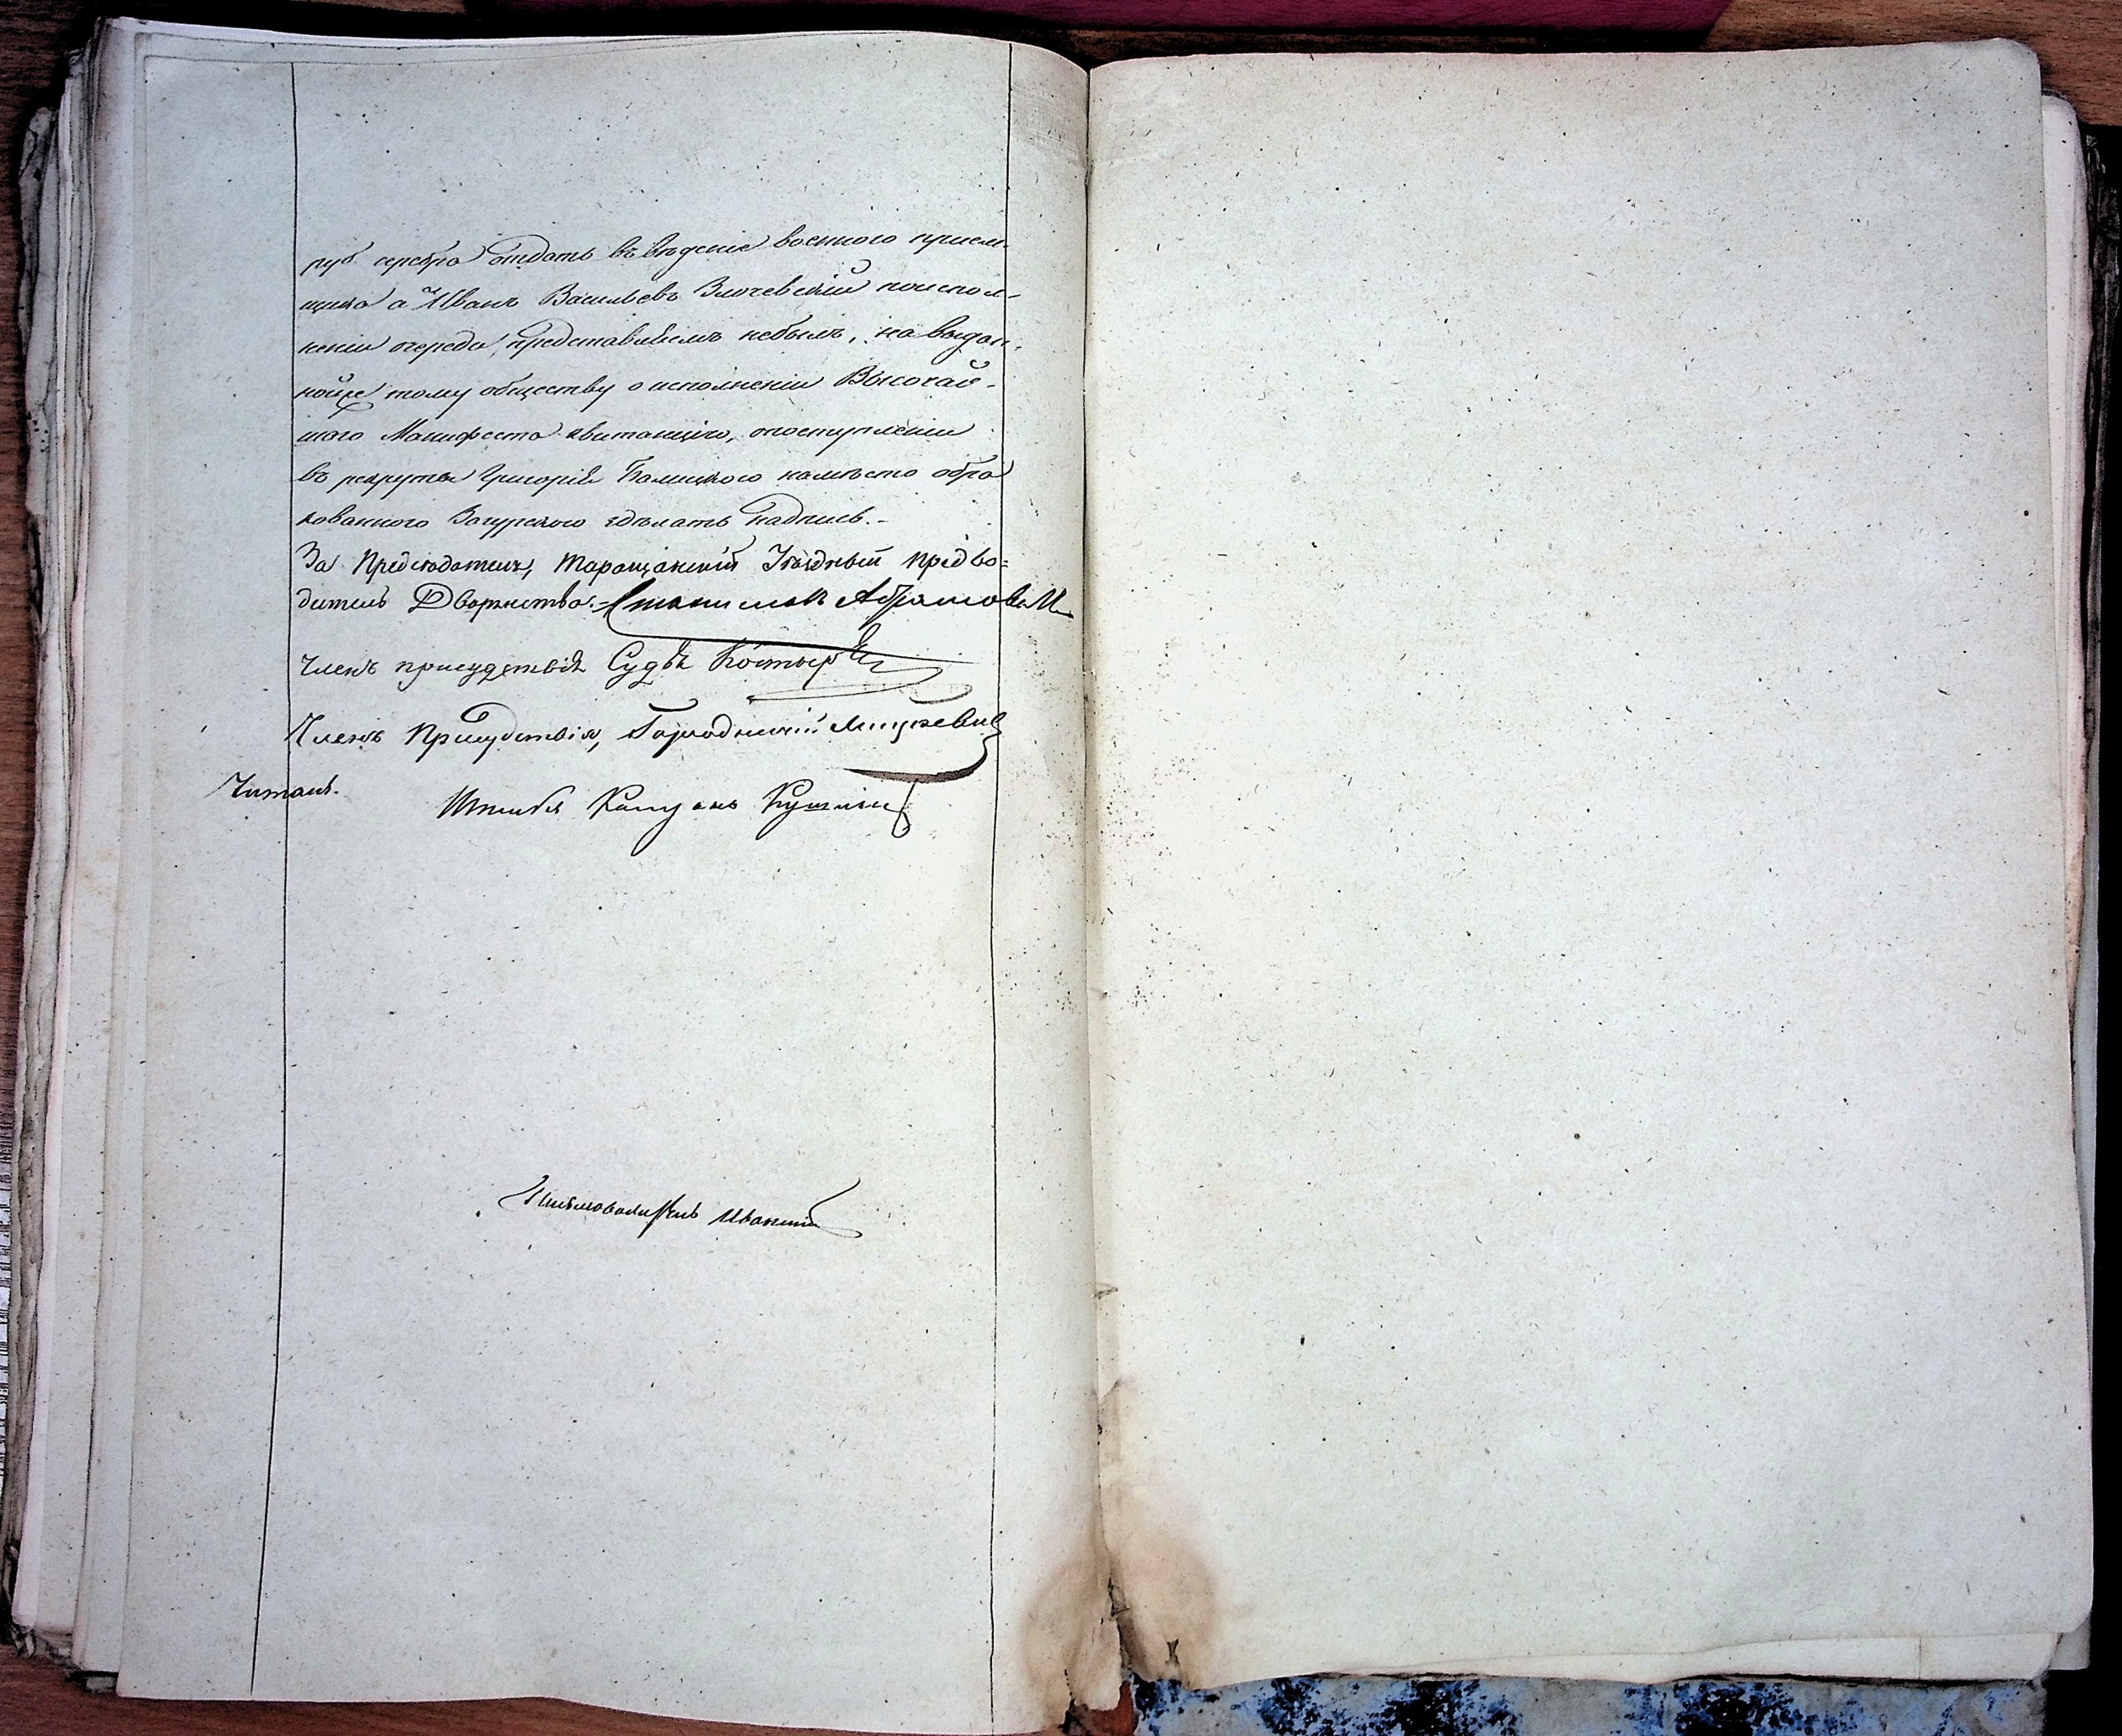 руб. серебра отдать въ вѣденіе военного пріем-
щика а Иванъ Васильевъ Злочевскій поиспол-
неніи очереди представленъ небылъ, на выдан-
нойже тому обществу о исполненіи Высочай-
шаго Манифеста квитанціи, опоступленіи
въ рекруты Григорія Балицкого намѣсто обра
кованного Загурского здѣлать надпись.-
За Предсѣдателя, Таращанскій Уѣздный предво=
дитель Дворянства.- Станиславъ
Членъ присудствія Судья
Членъ Присудствія, Городничій
Читалъ.
Штабъ Капитанъ
Письмоводитель